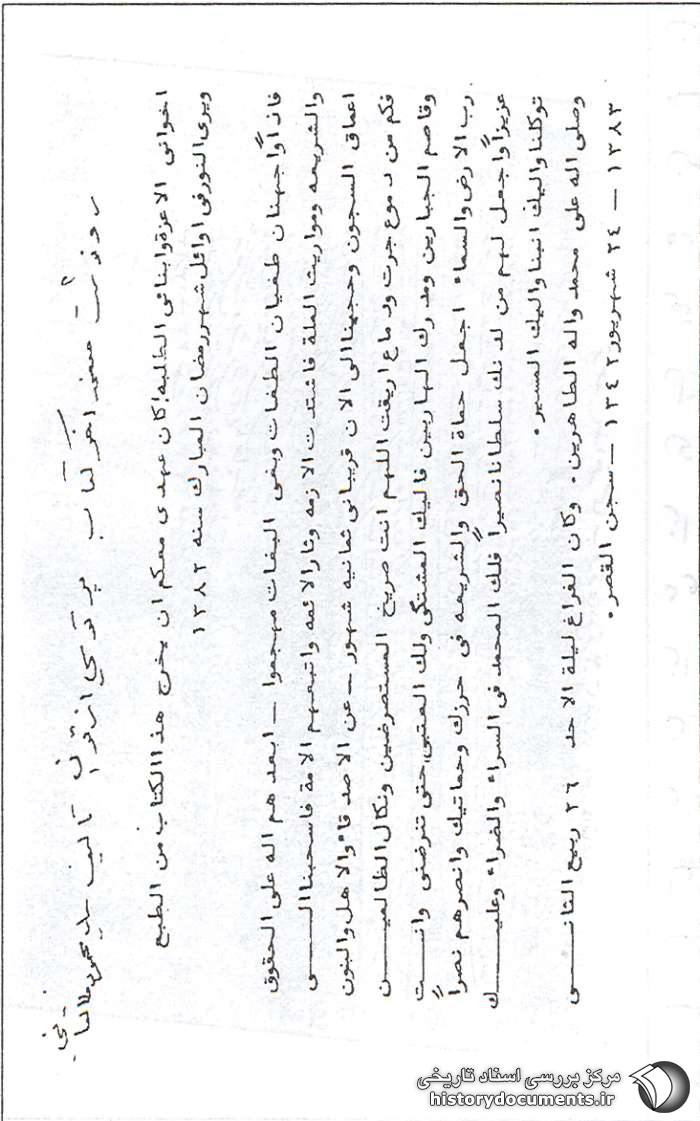 رونوشت صفحه آخر کتاب پرتوی از قرآن تالیف سید محمود طالقانی
اخوانی الاعزة وابنائی الطلبه! کان عهدی معکم ان یخرج هذا الکتاب من الطبع
ویری النور فی اوائل شهر رمضان المبارک سنه ۱۳۸۲
فاذاً واجهنان طغیان الطغات وبغی البغات مهجموا ـ ابعدهم اله علی الحقوق
والشریعه ومواریث الملة فاشتدت الازمه وثار الائمه واتبعهم الامة فاسحبنا الی
اعماق السجون وحجبنا الی الان قریبا فی ثمانیه شهور ـ عن الاصدقاء والاهل والبنون
فکم من دموع جرت ودماء اریقت اللهم انت صریخ المستصرخین ونکال الظالمین
وقاصم الجبارین ومدرک الهاربین فالیک المشتکی ولک العتبی حتی ترضی وانت
رب الارض والسماء اجعل حماة الحق والشریعه فی حرزک وحمایتک وانصرهم نصراً
عزیزاً واجعل لهم من لدنک سلطانا نصیراً فلک المحمد فی السراء والضراء وعلیک
توکلنا والیک انبنا والیک المسیر.
وصلی اله علی محمد واله الطاهرین. وکان الفراغ لیلة الاحد ۲۶ ربیع الثانی
۱۳۸۳ ـ ۲۴ شهریور ۱۳۴۲ ـ سجن القصر.
مرکز بررسی اسناد تاریخی
historydocuments.ir